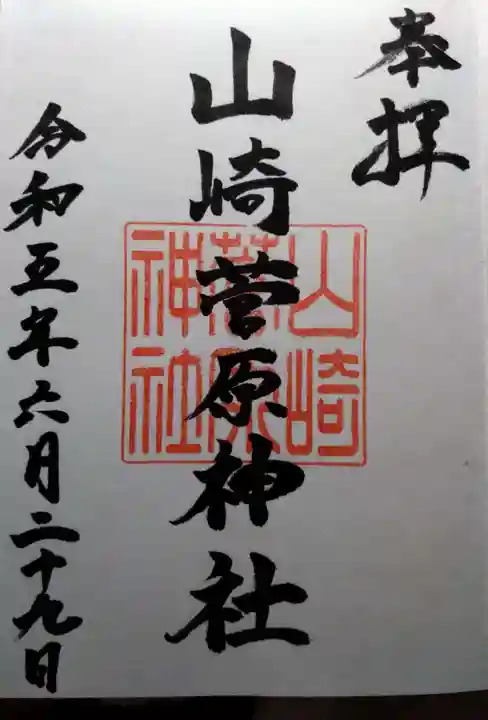 奉拝
山崎菅原神社
山崎
菅原
神社
令和五年六月二十九日